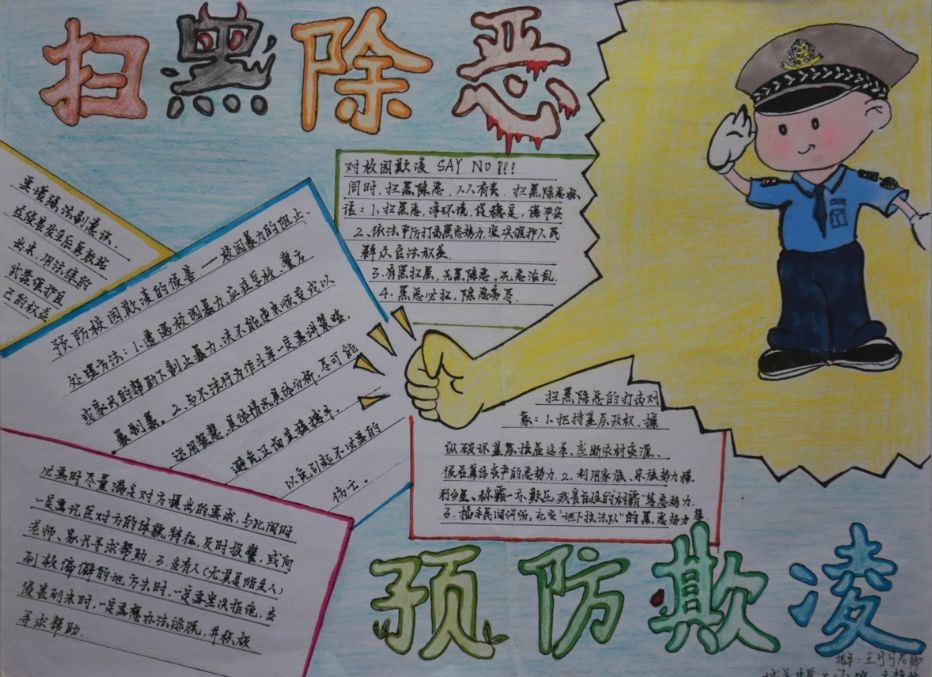 扫黑除恶
对校园欺凌 SAY NO!!!
同时,扫黑除恶,人人有责,扫黑除恶标
语:1、扫黑恶,净环境,促稳定,保平安
2、依法严厉打击黑恶势力,坚决维护人民
群众合法权益.
3.有黑扫黑,无黑除恶,无恶治乱.
4.黑恶必扫,除恶务尽.
要增强法制意识,
在侵害发生后勇敢站
出来,用法律的
武器维护自
己的权益
预防校园欺凌的侵害——校园暴力的阻止、
处理方法:1.遭遇校园暴力应在学校、警方
或家长的帮助下制止暴力,决不能逆来顺受或以
暴制暴。2、与不法行为作斗争一定要讲策略,
运用智慧,具体情况具体分析,尽可能
避免正面直接搏斗,
以免引起不必要的
伤亡。
必要时尽量满足对方提出的要求,与此同时
一定要记住对方的体貌特征,及时报警,或向
老师、家长寻求帮助.3.当有人(尤其是陌生人)
到较偏僻的地方去时,一定要坚决拒绝,当
侵害到来时,一定要想办法逃脱,并积极
寻求帮助.
扫黑除恶的打击对
象:1.把持基层政权、操
纵破坏基层换届选举、垄断农村资源、
侵吞集体资产的恶势力.2、利用家族、宗族势力横
行乡里、称霸一方、欺压残害百姓的“村霸”等恶势力.
3.插手民间纠纷,充当“地下执法队”的黑恶势力等
预防欺凌